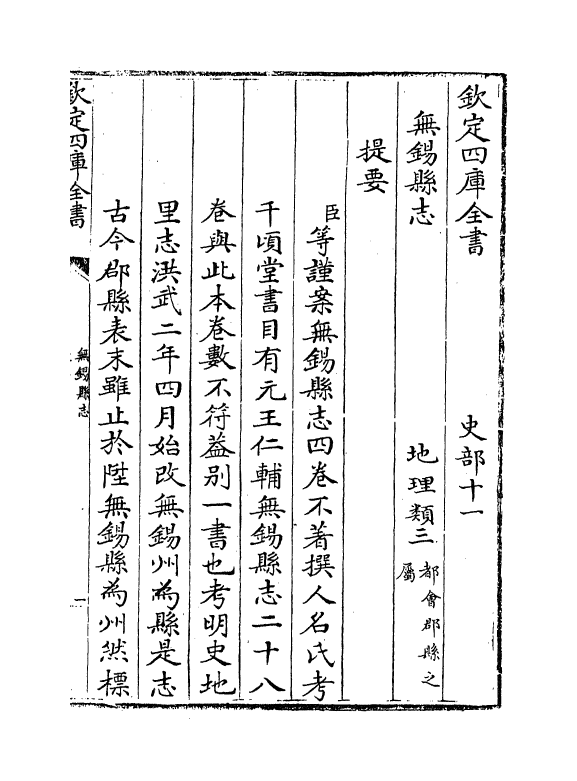 欽定四庫全書 史部十一
無錫縣志 地理類三都會郡縣之屬
提要
臣等謹案無錫縣志四卷不著撰人名氏考
千頃堂書目有元王仁輔無錫縣志二十八
卷與此本卷數不符葢别一書也考明史地
里志洪武二年四月始改無錫州為縣是志
古今郡縣表末雖止於陞無錫縣為州然標
欽定四庫全書
無錫縣志
一